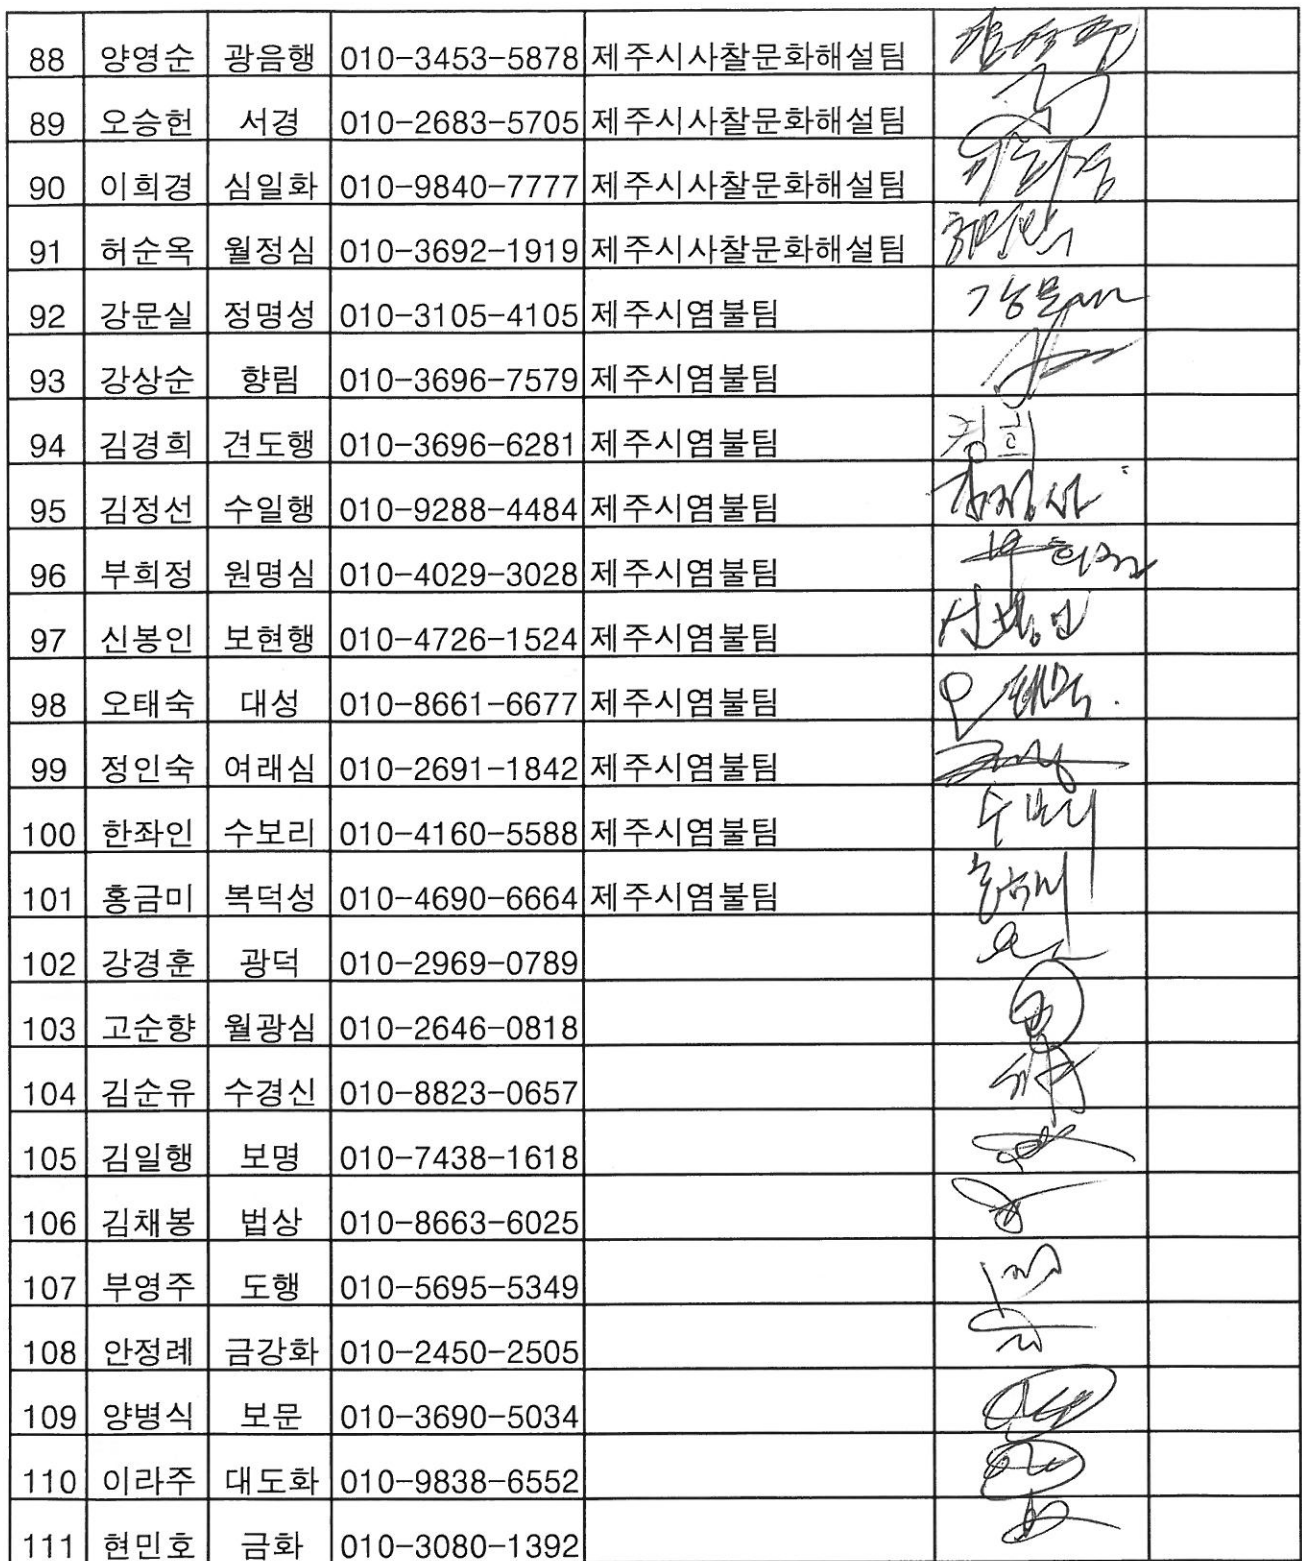 88 양영순 광음행 010-3453-5878 제주시사찰문화해설팀
89 오승헌 서경 010-2683-5705 제주시사찰문화해설팀
90 이희경 심일화 010-9840-7777 제주시사찰문화해설팀
91 허순옥 월정심 010-3692-1919 제주시사찰문화해설팀
92 강문실 정명성 010-3105-4105 제주시염불팀
93 강상순 향림 010-3696-7579 제주시염불팀
94 김경희 견도행 010-3696-6281 제주시염불팀
95 김정선 수일행 010-9288-4484 제주시염불팀
96 부희정 원명심 010-4029-3028 제주시염불팀
97 신봉인 보현행 010-4726-1524 제주시염불팀 신봉인
98 오태숙 대성 010-8661-6677 제주시염불팀 오태숙
99 정인숙 여래심 010-2691-1842 제주시염불팀
100 한좌인 수보리 010-4160-5588 제주시염불팀 수보리
101 홍금미 복덕성 010-4690-6664 제주시염불팀
102 강경훈 광덕 010-2969-0789
103 고순향 월광심 010-2646-0818
104 김순유 수경신 010-8823-0657
105 김일행 보명 010-7438-1618
106 김채봉 법상 010-8663-6025
107 부영주 도행 010-5695-5349
108 안정례 금강화 010-2450-2505
109 양병식 보문 010-3690-5034
110 이라주 대도화 010-9838-6552
111 현민호 금화 010-3080-1392